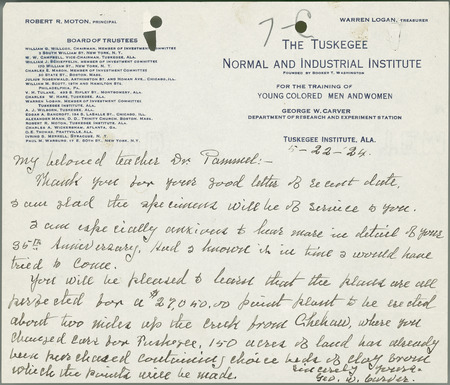 ROBERT R. MOTON, PRINCIPAL
WARREN LOGAN, TREASURER
BOARD OF TRUSTEES
WILLIAM G. WILLCOX, CHAIRMAN, MEMBER OF INVESTMENT COMMITTEE
3 SOUTH WILLIAM ST., NEW YORK, N. Y.
W. W. CAMPBELL, VICE-CHAIRMAN, TUSKEGEE, ALA.
WILLIAM J. SCHIEFFELIN, MEMBER OF INVESTMENT COMMITTEE
NEW YORK, N. Y.
CHARLES E. MASON, MEMBER OF INVESTMENT COMMITTEE
STATE ST., BOSTON, MASS.
JULIUS ROSENWALD, CHICAGO, ILL.
WILLIAM M. SCOTT,
PHILADELPHIA, PA.
V. H. TULANE, RIPLEY ST., MONTGOMERY, ALA.
CHARLES W. HARE, TUSKEGEE, ALA.
WARREN LOGAN, MEMBER OF INVESTMENT COMMITTEE
TUSKEGEE INSTITUTE, ALA.
A. J. WILBORN, TUSKEGEE, ALA.
EDGAR A. BANCROFT, LA SALLE ST., CHICAGO, ILL.
ALEXANDER MANN, D. D., TRINITY CHURCH, BOSTON, MASS.
ROBERT R. MOTON, TUSKEGEE INSTITUTE, ALA.
CHARLES A. WICKERSHAM, ATLANTA, GA.
G. E. THOMAS, TRUSTVILLE, ALA.
NEW YORK, N. Y.
PAUL M. WARBURG, NEW YORK, N. Y.
THE TUSKEGEE
NORMAL AND INDUSTRIAL INSTITUTE
FOUNDED BY BOOKER T. WASHINGTON
FOR THE TRAINING OF
YOUNG COLORED MEN AND WOMEN
GEORGE W. CARVER
DEPARTMENT OF RESEARCH AND EXPERIMENT STATION
TUSKEGEE INSTITUTE, ALA.
5-22-24.
My beloved teacher Dr. Pammel:-
Thank you for your good letter of recent date.
I am glad the specimens will be of service to you.
I am especially anxious to hear more in detail of your
35th Anniversary, had I known it in time I would have
tried to come.
You will be pleased to learn that the plans are all
perfected for a $27,050.00 paint plant to be erected
about two miles up the creek from Chehaw, where you
changed cars for Tuskegee, 150 acres of land has already
been purchased containing choice beds of clay from
which the paints will be made.
Sincerely yours,
Geo. W. Carver.